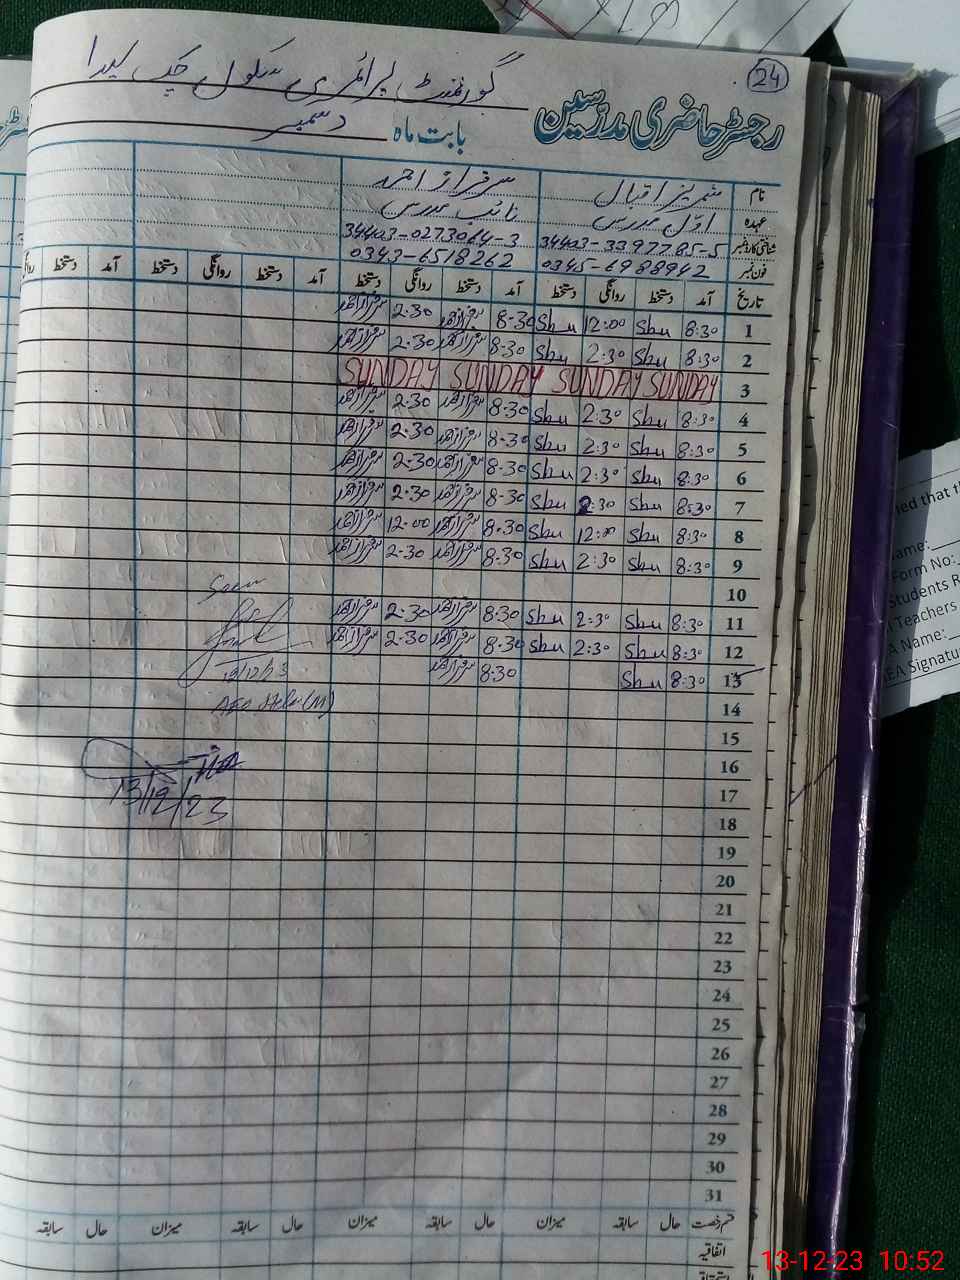 24
گورنمنٹ پرائمری سکول چک
رجسٹر حاضری مدرسین
بابت ماہ دسمبر
نام اقبال سرفراز احمد
عہدہ اول مدرس نائب مدرس
شناختی کارڈ نمبر 34403-3397785-5 34403-0273064-3
فون نمبر 0345-6988942 0343-6518262
تاریخ آمد دستخط روانگی دستخط آمد دستخط روانگی دستخط آمد دستخط روانگی دستخط آمد دستخط
1 8:30 Sbu 12:00 Sbu 8-30 سرفراز احمد 2-30 سرفراز احمد
2 8:30 Sbu 2:30 Sbu 8-30 سرفراز احمد 2-30 سرفراز احمد
3 SUNDAY SUNDAY SUNDAY SUNDAY
4 8:30 Sbu 2:30 Sbu 8-30 سرفراز احمد 2-30 سرفراز احمد
5 8:30 Sbu 2:30 Sbu 8-30 سرفراز احمد 2-30 سرفراز احمد
6 8:30 Sbu 2:30 Sbu 8-30 سرفراز احمد 2-30 سرفراز احمد
7 8:30 Sbu 2:30 Sbu 8-30 سرفراز احمد 2-30 سرفراز احمد
8 8:30 Sbu 12:00 Sbu 8-30 سرفراز احمد 12-00 سرفراز احمد
9 8:30 Sbu 2:30 Sbu 8-30 سرفراز احمد 2-30 سرفراز احمد
10
11 8:30 Sbu 2:30 Sbu 8-30 سرفراز احمد 2-30 سرفراز احمد
12 8:30 Sbu 2:30 Sbu 8-30 سرفراز احمد 2-30 سرفراز احمد
13 8:30 Sbu 8-30 سرفراز احمد
Seen
14
15
16
13/12/23
17
18
19
20
21
22
23
24
25
26
27
28
29
30
31
قسم رخصت حال سابقہ میزان حال سابقہ میزان حال سابقہ میزان حال سابقہ
اتفاقیہ
ied that th
ame:
Form No:
Students R
Teachers
A Name:
EA Signatu
13-12-23 10:52